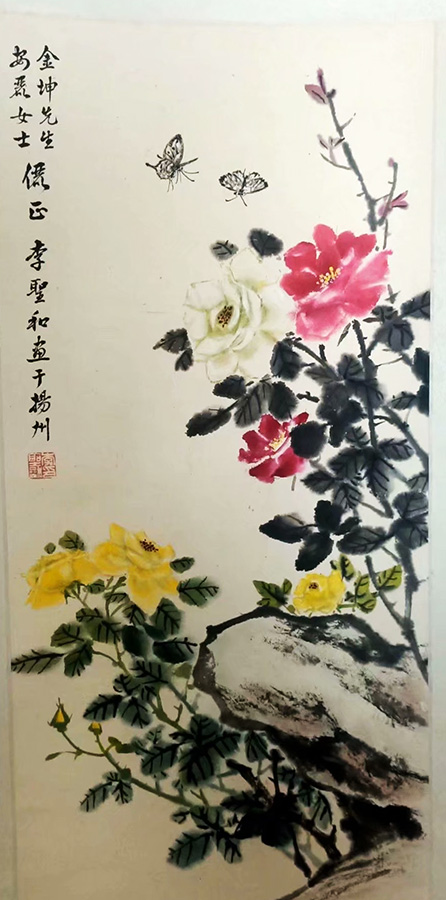 金坤先生
安磊女士
儷正 李聖和画于揚州